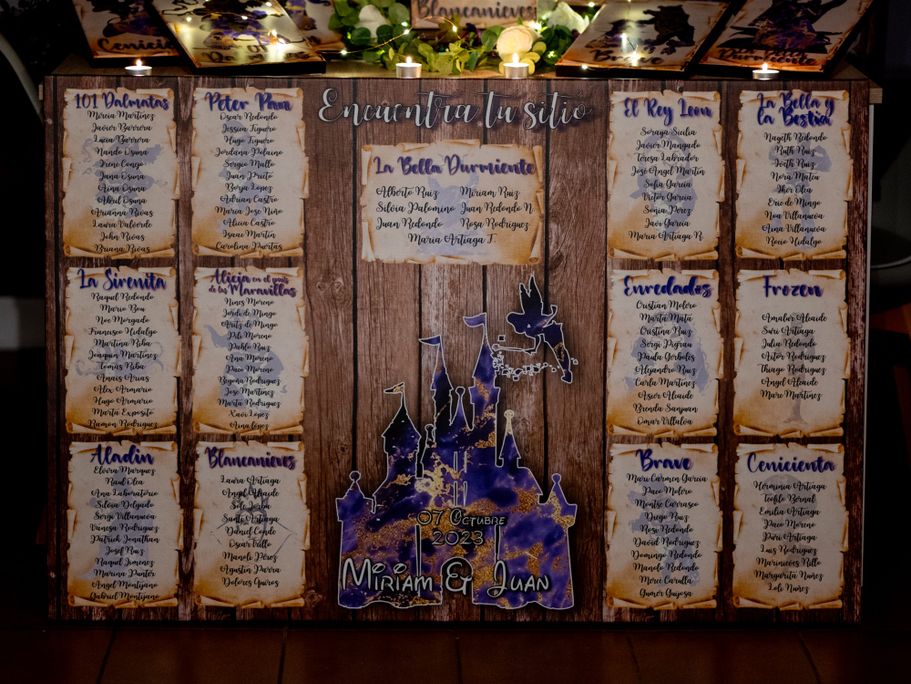 Cenicie
Blancanieves
Brave
Encuentra tu sitio
101 Dalmatas
Miriam Martinez
Javier Barrera
Lucia Barrera
Nando Osuna
Irene Conejo
Jana Osuna
Aina Osuna
Abril Osuna
Arianna Rivas
Laura Valverde
John Rivas
Briana Rivas
Peter Pan
Oscar Redondo
Jessica Figuero
Hugo Figuero
Jordana Pelaino
Sergio Mallo
Juan Prieto
Borja Lopez
Adrian Castro
Maria Jose Niño
Alicia Castro
Isaac Martin
Carolina Puertas
La Bella Durmiente
Alberto Ruiz Miriam Ruiz
Silvia Palomino Juan Redondo N.
Juan Redondo Rosa Rodriguez
Maria Artiaga T.
El Rey Leon
Soraya Sicilia
Javier Mangado
Teresa Labrador
José Angel Martin
Sofia Garcia
Victor Garcia
Sonia Perez
Javi Garcia
Maria Artiaga R.
La Bella y
la Bestia
Nageth Redondo
Ruth Ruiz
Iveth Ruiz
Nora Matea
Iker Olea
Eric de Mingo
Noa Villanueva
Aina Villanueva
Rocio Hidalgo
La Sirenita
Raquel Redondo
Mario Bou
Noe Morgado
Francisco Hidalgo
Martina Riba
Joaquin Martinez
Tomas Riba
Anais Arias
Alex Armario
Hugo Armario
Marta Exposito
Ramon Rodriguez
Alicia en el pais
de las Maravillas
Nines Moreno
Jordi de Mingo
Aritz de Mingo
Pili Moreno
Pablo Ruiz
Ana Moreno
Paco Moreno
Begoña Rodriguez
Jose Martinez
Marta Rodriguez
Xavi Lopez
Aina Lopez
Enredados
Cristian Molero
Marta Mata
Cristina Ruiz
Sergi Pigrau
Paula Gorbolis
Alejandro Ruiz
Carla Martinez
Asier Alcaide
Brenda Sanjuan
Omar Villuloa
Frozen
Amalur Alcaide
Suri Artiaga
Julia Redondo
Aitor Rodriguez
Thiago Rodriguez
Angel Alcaide
Marc Martinez
Aladin
Elvira Marquez
Raul Olea
Ana Laboratorio
Silvia Delgado
Sergi Villanueva
Vanesa Rodriguez
Patrick Jonathan
Josef Ruiz
Raquel Jimenez
Marina Punter
Angel Montijano
Gabriel Montijano
Blancanieves
Laura Artiaga
Angel Alcaide
Sole Jorba
Santi Artiaga
Daniel Conde
Oscar Trillo
Manoli Pérez
Agustin Parra
Dolores Quiros
07 Octubre
2023
Miriam & Juan
Brave
Mari Carmen Garcia
Paco Molero
Montse Carrasco
Diego Ruiz
Rosa Redondo
David Rodriguez
Domingo Redondo
Manolo Redondo
Merce Caralla
Gumer Guijosa
Cenicienta
Herminia Artiaga
Teofilo Bernal
Emilia Artiaga
Paco Moreno
Puri Artiaga
Luis Rodriguez
Marinieves Rillo
Margarita Nuñez
Loli Nuñez